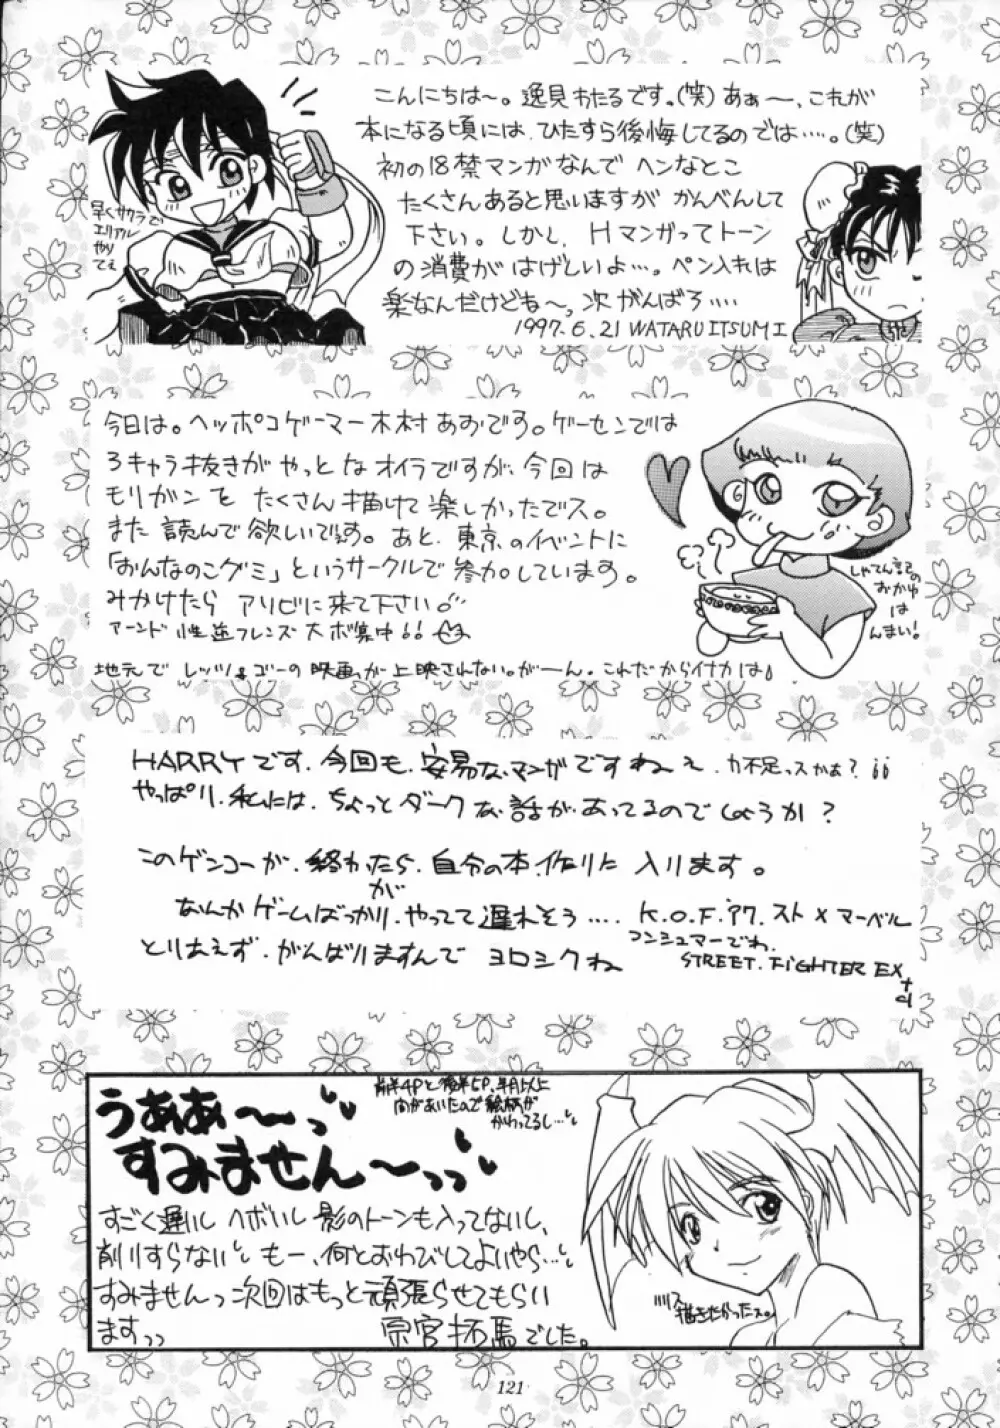 こんにちは〜。逸見わたるです。(笑) あぁ〜、これが
本になる頃には、ひたすら後悔してるのでは‥‥。(笑)
初の18禁マンガなんで ヘンなとこ
たくさんあると思いますが かんべんして
下さい。しかし、Hマンガってトーン
の消費がはげしいよ…。ペン入れは
楽なんだけどね〜、次がんばろ‥‥
1997.6.21 WATARU ITSUMI
早くサクラで
エリアル
やり
てぇ
今日は。ヘッポコゲーマー木村あおです。ゲーセンでは
3キャラ抜きがやっとなオイラですが、今回は
モリガンをたくさん描けて楽しかったでス。
また読んで欲しいです。あと、東京のイベントに
「おんなのこグミ」というサークルで参加しています。
みかけたら アソビに来て下さい!
アーンド 性 フレンズ大ボ集中!!
地元で レッツ&ゴーの映画が上映されない。がーん。これだからイナカは!
しゃてん記の
おかゆ
は
んまい!
HARRYです.今回も.安易な.マンガですねぇ.力不足っスかぁ?
やっぱり.私には.ちょっとダークな.話が.あってるのでしょうか?
このゲンコーが.終わったら.自分の本.作りに入ります。
なんかゲームばっかり.やってて遅れそう‥‥ K.O.F.'97.スト×マーベル
が
コンシュマーでわ.
STREET.FIGHTER EX
+α
とりあえず.がんばりますんで ヨロシクね
うあぁ〜っ
すみません〜っっ
前半4Pと後半5P、半月以上
間があいたので絵柄が
かわってるし…
すごく遅いし ヘボいし 影のトーンも入ってないし、
削りすらない もー、何とおわびしてよいやら…
すみませんっ次回はもっと頑張らせてもらい
ますっっ 宗官拓馬でした。
リリス
描きたかったス。
121